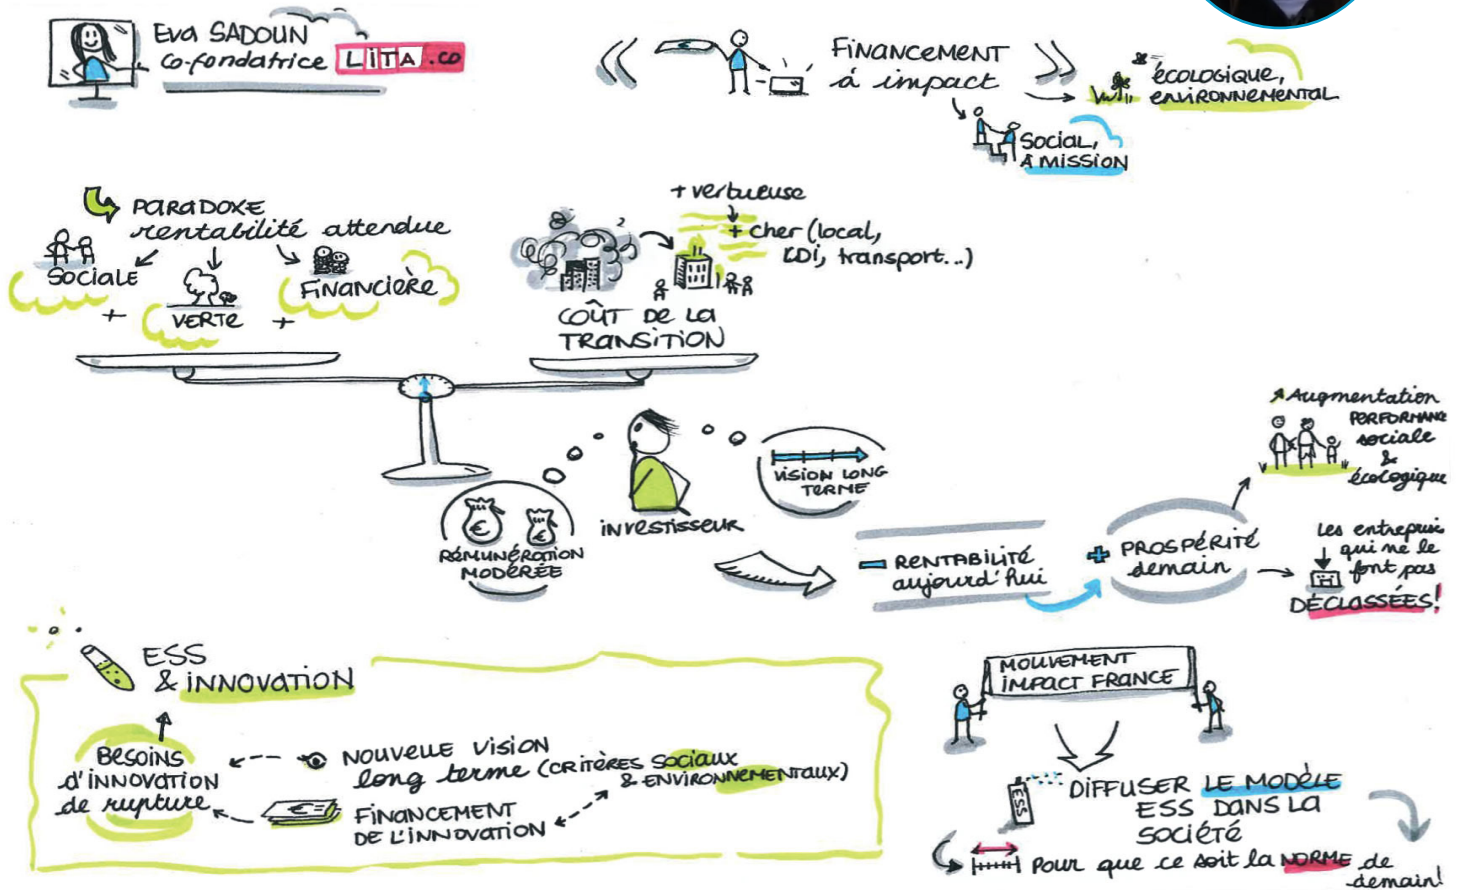 Eva SADOUN
co-fondatrice LITA.co
« FINANCEMENT
à impact »
écologique,
environnemental
Social,
à mission
PARADOXE
rentabilité attendue
SOCIALE
+
VERTE
+
FINANCIÈRE
+ vertueuse
+ cher (local,
CDI, transport...)
COÛT DE LA
TRANSITION
€ €
RÉMUNÉRATION
MODÉRÉE
investisseur
VISION LONG
TERME
- RENTABILITÉ
aujourd'hui
+ PROSPÉRITÉ
demain
Augmentation
PERFORMANCE
sociale
&
écologique
Les entreprises
qui ne le
font pas
DÉCLASSÉES!
ESS
& INNOVATION
BESOINS
d'INNOVATION
de rupture
NOUVELLE VISION
long terme (CRITÈRES SOCIAUX
& ENVIRONNEMENTAUX)
€
FINANCEMENT
DE L'INNOVATION
MOUVEMENT
IMPACT FRANCE
ESS
DIFFUSER LE MODÈLE
ESS DANS LA
SOCIÉTÉ
Pour que ce soit la NORME de
demain!